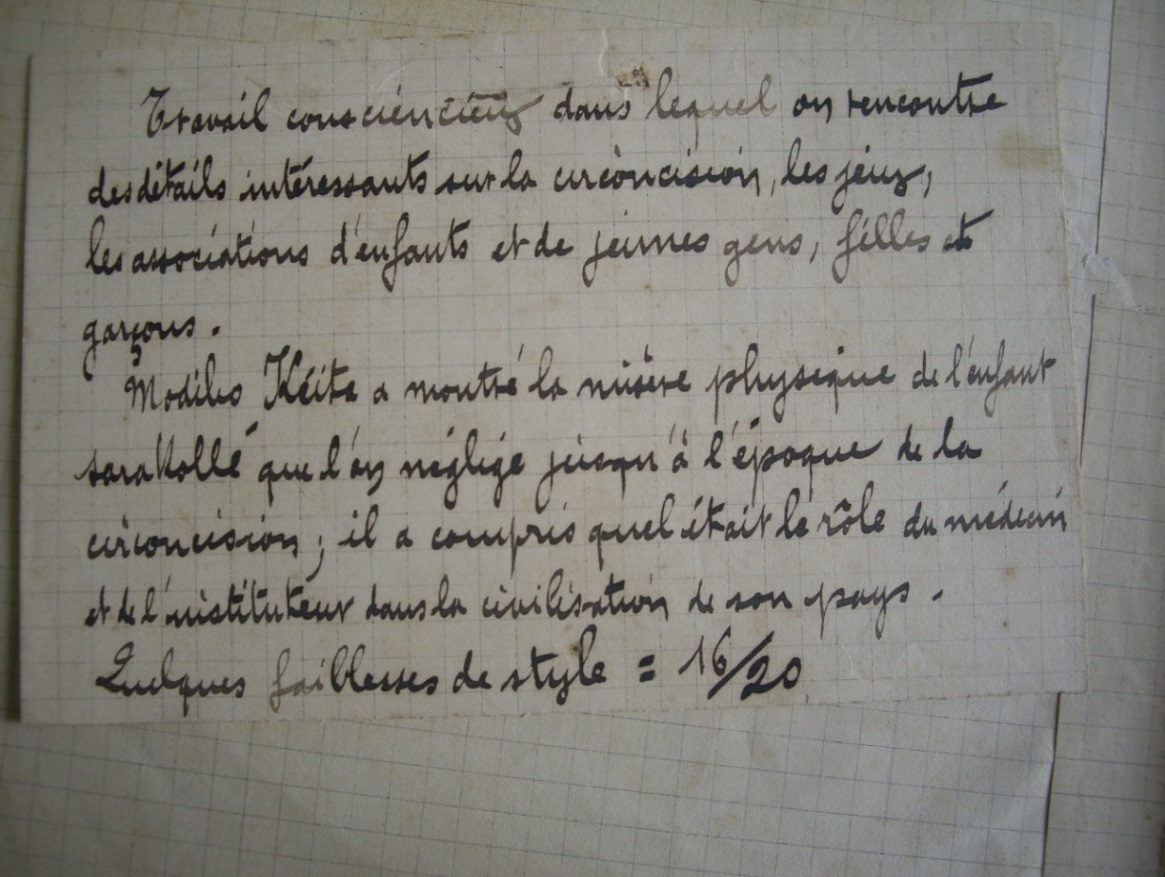 Travail consciencieux dans lequel on rencontre
des détails intéressants sur la circoncision, les jeux,
les associations d'enfants et de jeunes gens, filles et
garçons.
Modibo Kéita a montré la misère physique de l'enfant
sarakollé que l'on néglige jusqu'à l'époque de la
circoncision; il a compris quel était le rôle du médecin
et de l'instituteur dans la civilisation de son pays.
Quelques faiblesses de style = 16/20